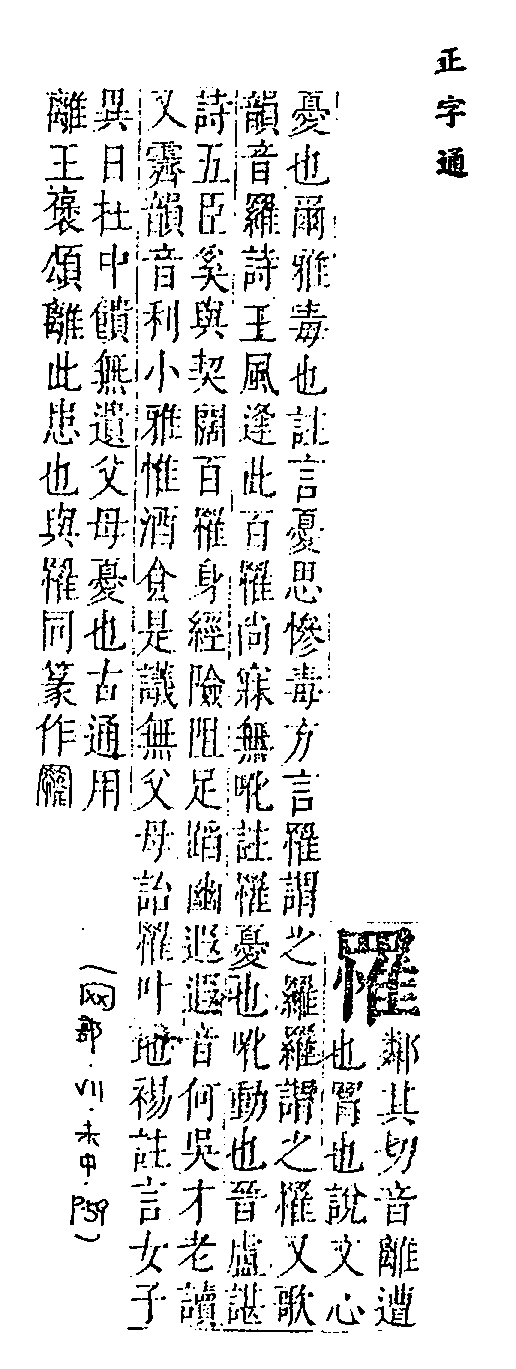 正字通
罹
鄰其切音離遭
也罥也說文心
憂也爾雅毒也註言憂思慘毒方言罹謂之羅羅謂之罹又歌
韻音羅詩王風逢此百罹尚寐無吪註罹憂也吪動也晉盧諶
詩五臣奚與契闊百罹身經險阻足蹈幽遐遐音何吳才老讀
又霽韻音利小雅惟酒食是議無父母詒罹叶地裼註言女子
異日在中饋無遺父母憂也古通用
離王褒頌離此患也與罹同篆作
(网部·VII·未中·P.59)